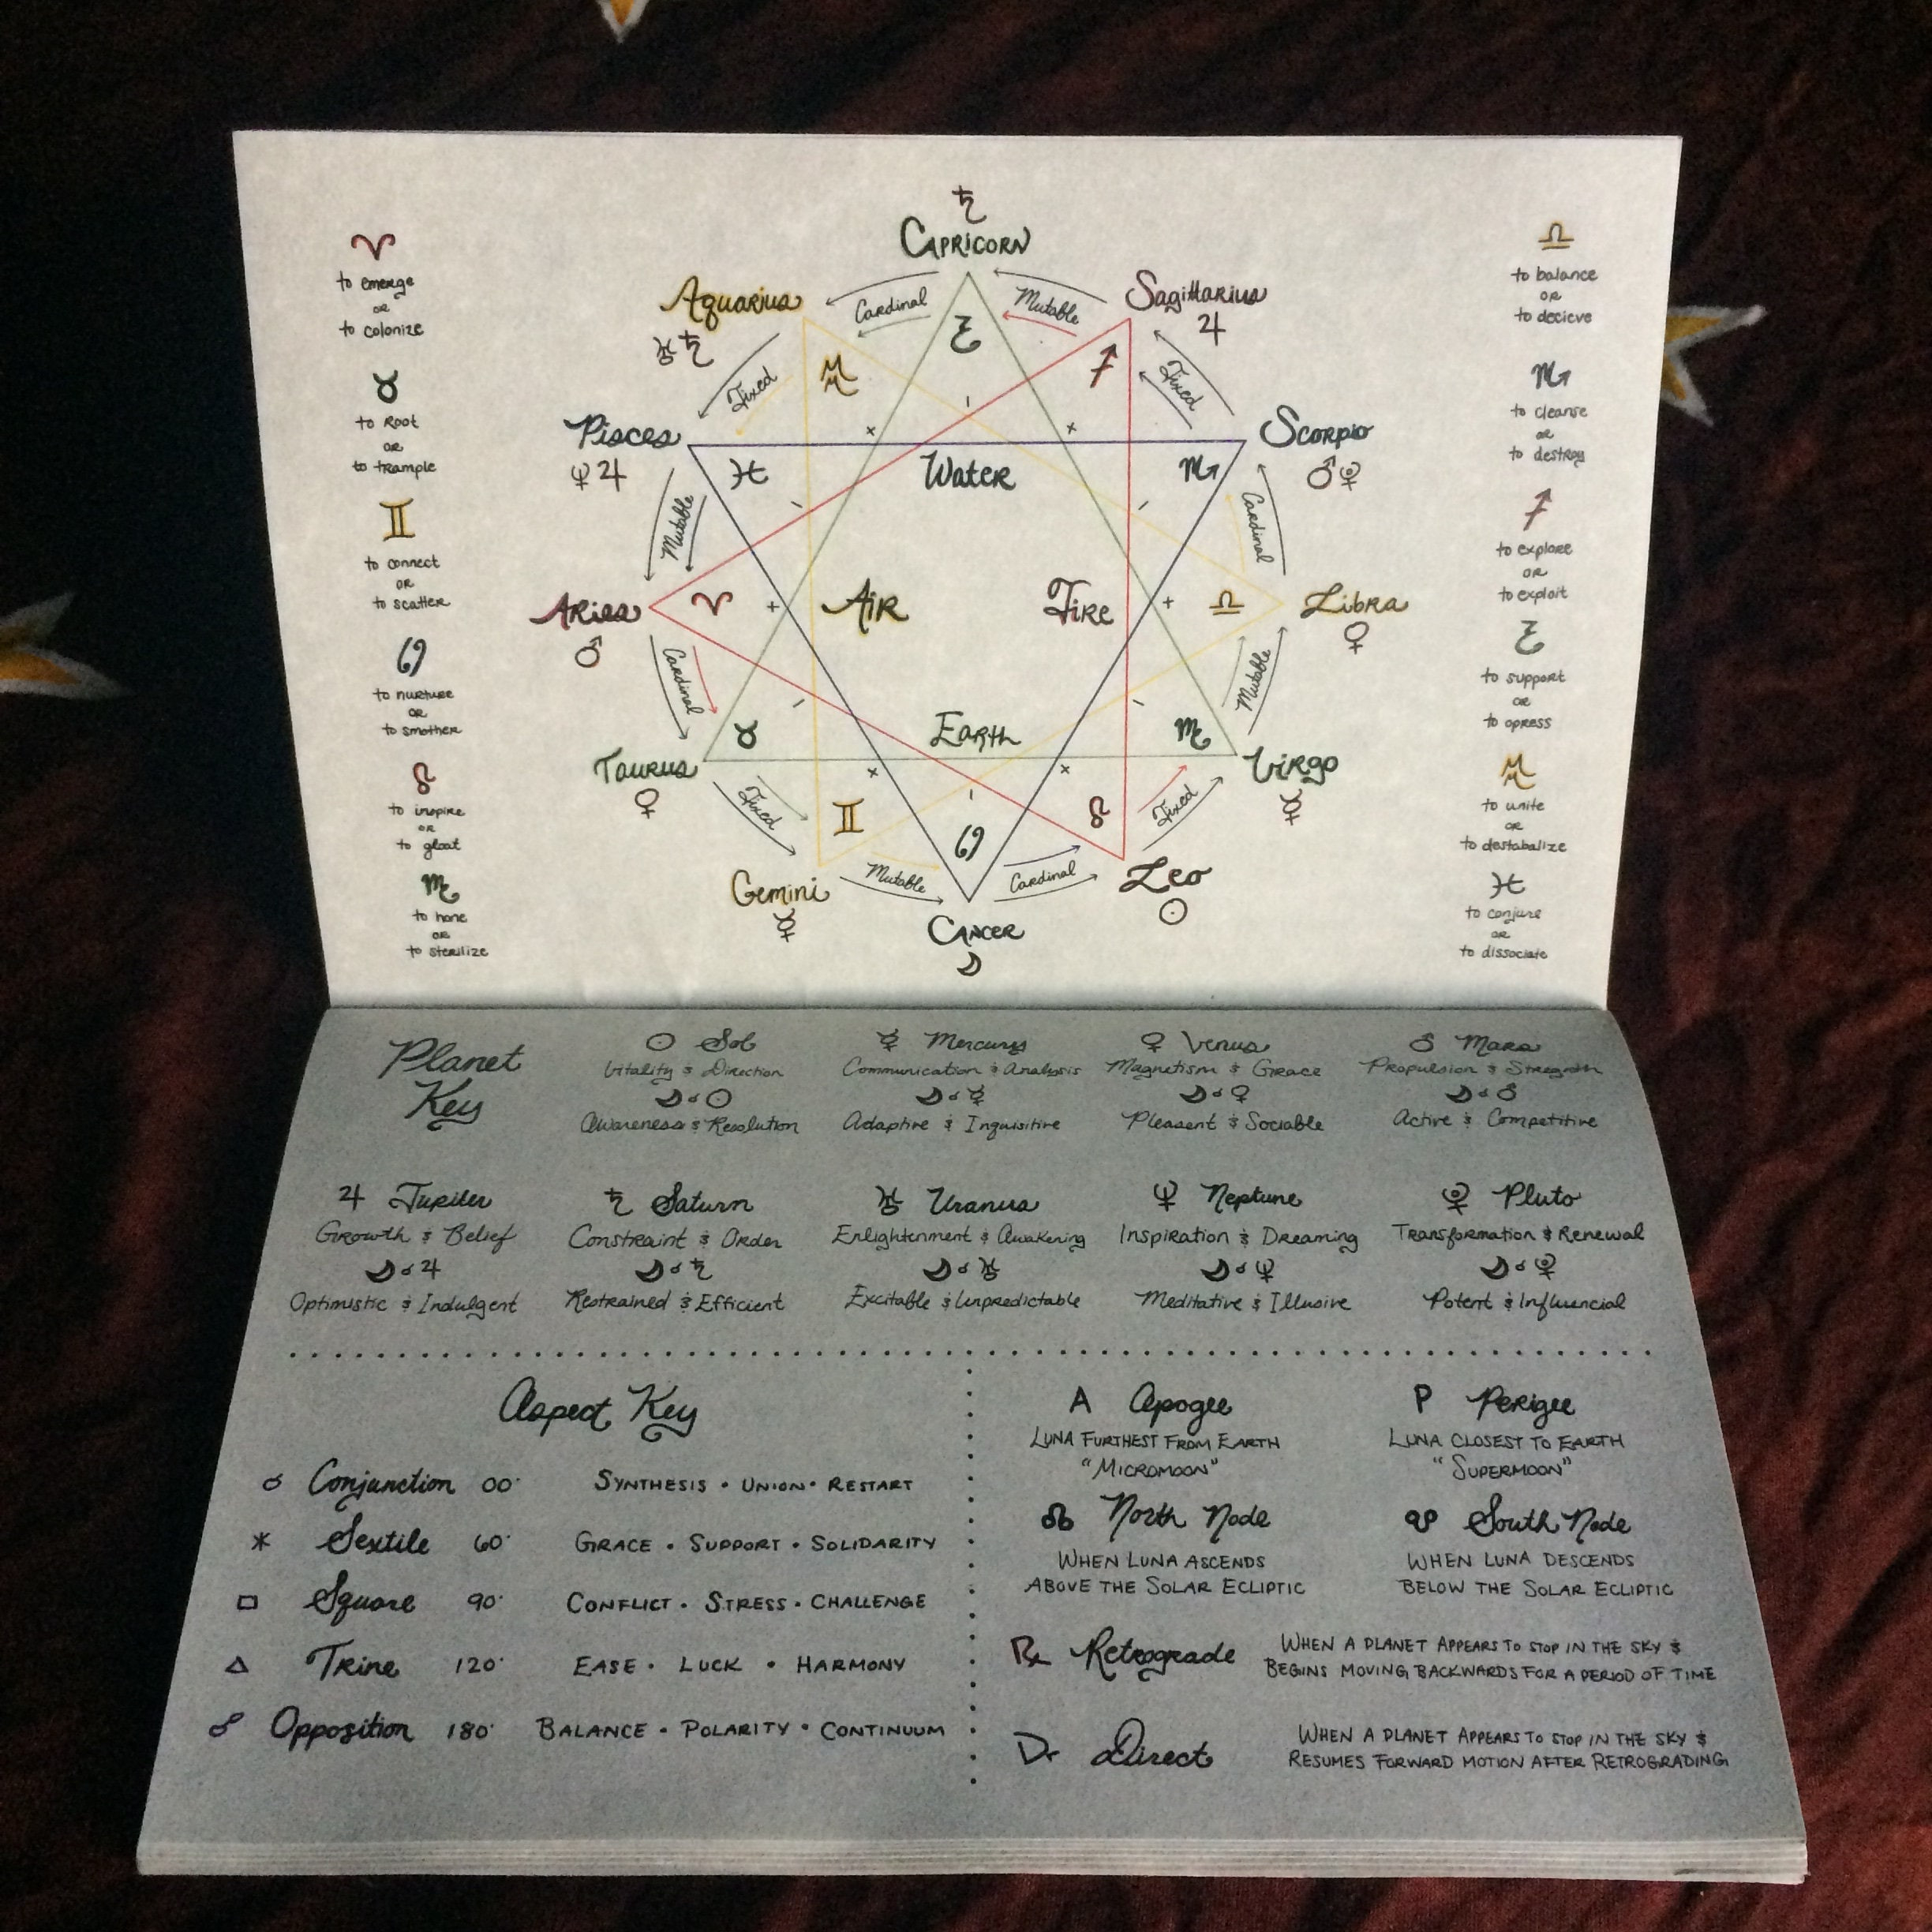 ♄
Capricorn
Aquarius
♅ ♄
Sagittarius
♃
Pisces
♆ ♃
Scorpio
♂ ♇
Aries
♂
Libra
♀
Taurus
♀
Virgo
☿
Gemini
☿
Cancer
☽
Leo
☉
Cardinal
Mutable
Fixed
Fixed
Mutable
Cardinal
Cardinal
Mutable
Fixed
Fixed
Mutable
Cardinal
Water
Air
Fire
Earth
♈
to emerge
or
to colonize
♉
to root
or
to trample
♊
to connect
or
to scatter
♋
to nurture
or
to smother
♌
to inspire
or
to gloat
♍
to hone
or
to sterilize
♎
to balance
or
to decieve
♏
to cleanse
or
to destroy
♐
to explore
or
to exploit
♑
to support
or
to opress
♒
to unite
or
to destabalize
♓
to conjure
or
to dissociate
Planet
Key
☉ Sol
Vitality & Direction
☽ ☌ ☉
Awareness & Resolution
☿ Mercury
Communication & Analysis
☽ ☌ ☿
Adaptive & Inquisitive
♀ Venus
Magnetism & Grace
☽ ☌ ♀
Pleasent & Sociable
♂ Mars
Propulsion & Strength
☽ ☌ ♂
Active & Competitive
♃ Jupiter
Growth & Belief
☽ ☌ ♃
Optimistic & Indulgent
♄ Saturn
Constraint & Order
☽ ☌ ♄
Restrained & Efficient
♅ Uranus
Enlightenment & Awakening
☽ ☌ ♅
Excitable & Unpredictable
♆ Neptune
Inspiration & Dreaming
☽ ☌ ♆
Meditative & Illusive
♇ Pluto
Transformation & Renewal
☽ ☌ ♇
Potent & Influencial
Aspect Key
☌ Conjunction 00° Synthesis • Union • Restart
⚹ Sextile 60° Grace • Support • Solidarity
□ Square 90° Conflict • Stress • Challenge
△ Trine 120° Ease • Luck • Harmony
☍ Opposition 180° Balance • Polarity • Continuum
A Apogee
Luna furthest from Earth
"Micromoon"
P Perigee
Luna closest to Earth
"Supermoon"
☊ North Node
When Luna ascends
above the Solar Ecliptic
☋ South Node
When Luna descends
below the Solar Ecliptic
℞ Retrograde
When a planet appears to stop in the sky &
begins moving backwards for a period of time
Dr Direct
When a planet appears to stop in the sky &
resumes forward motion after retrograding